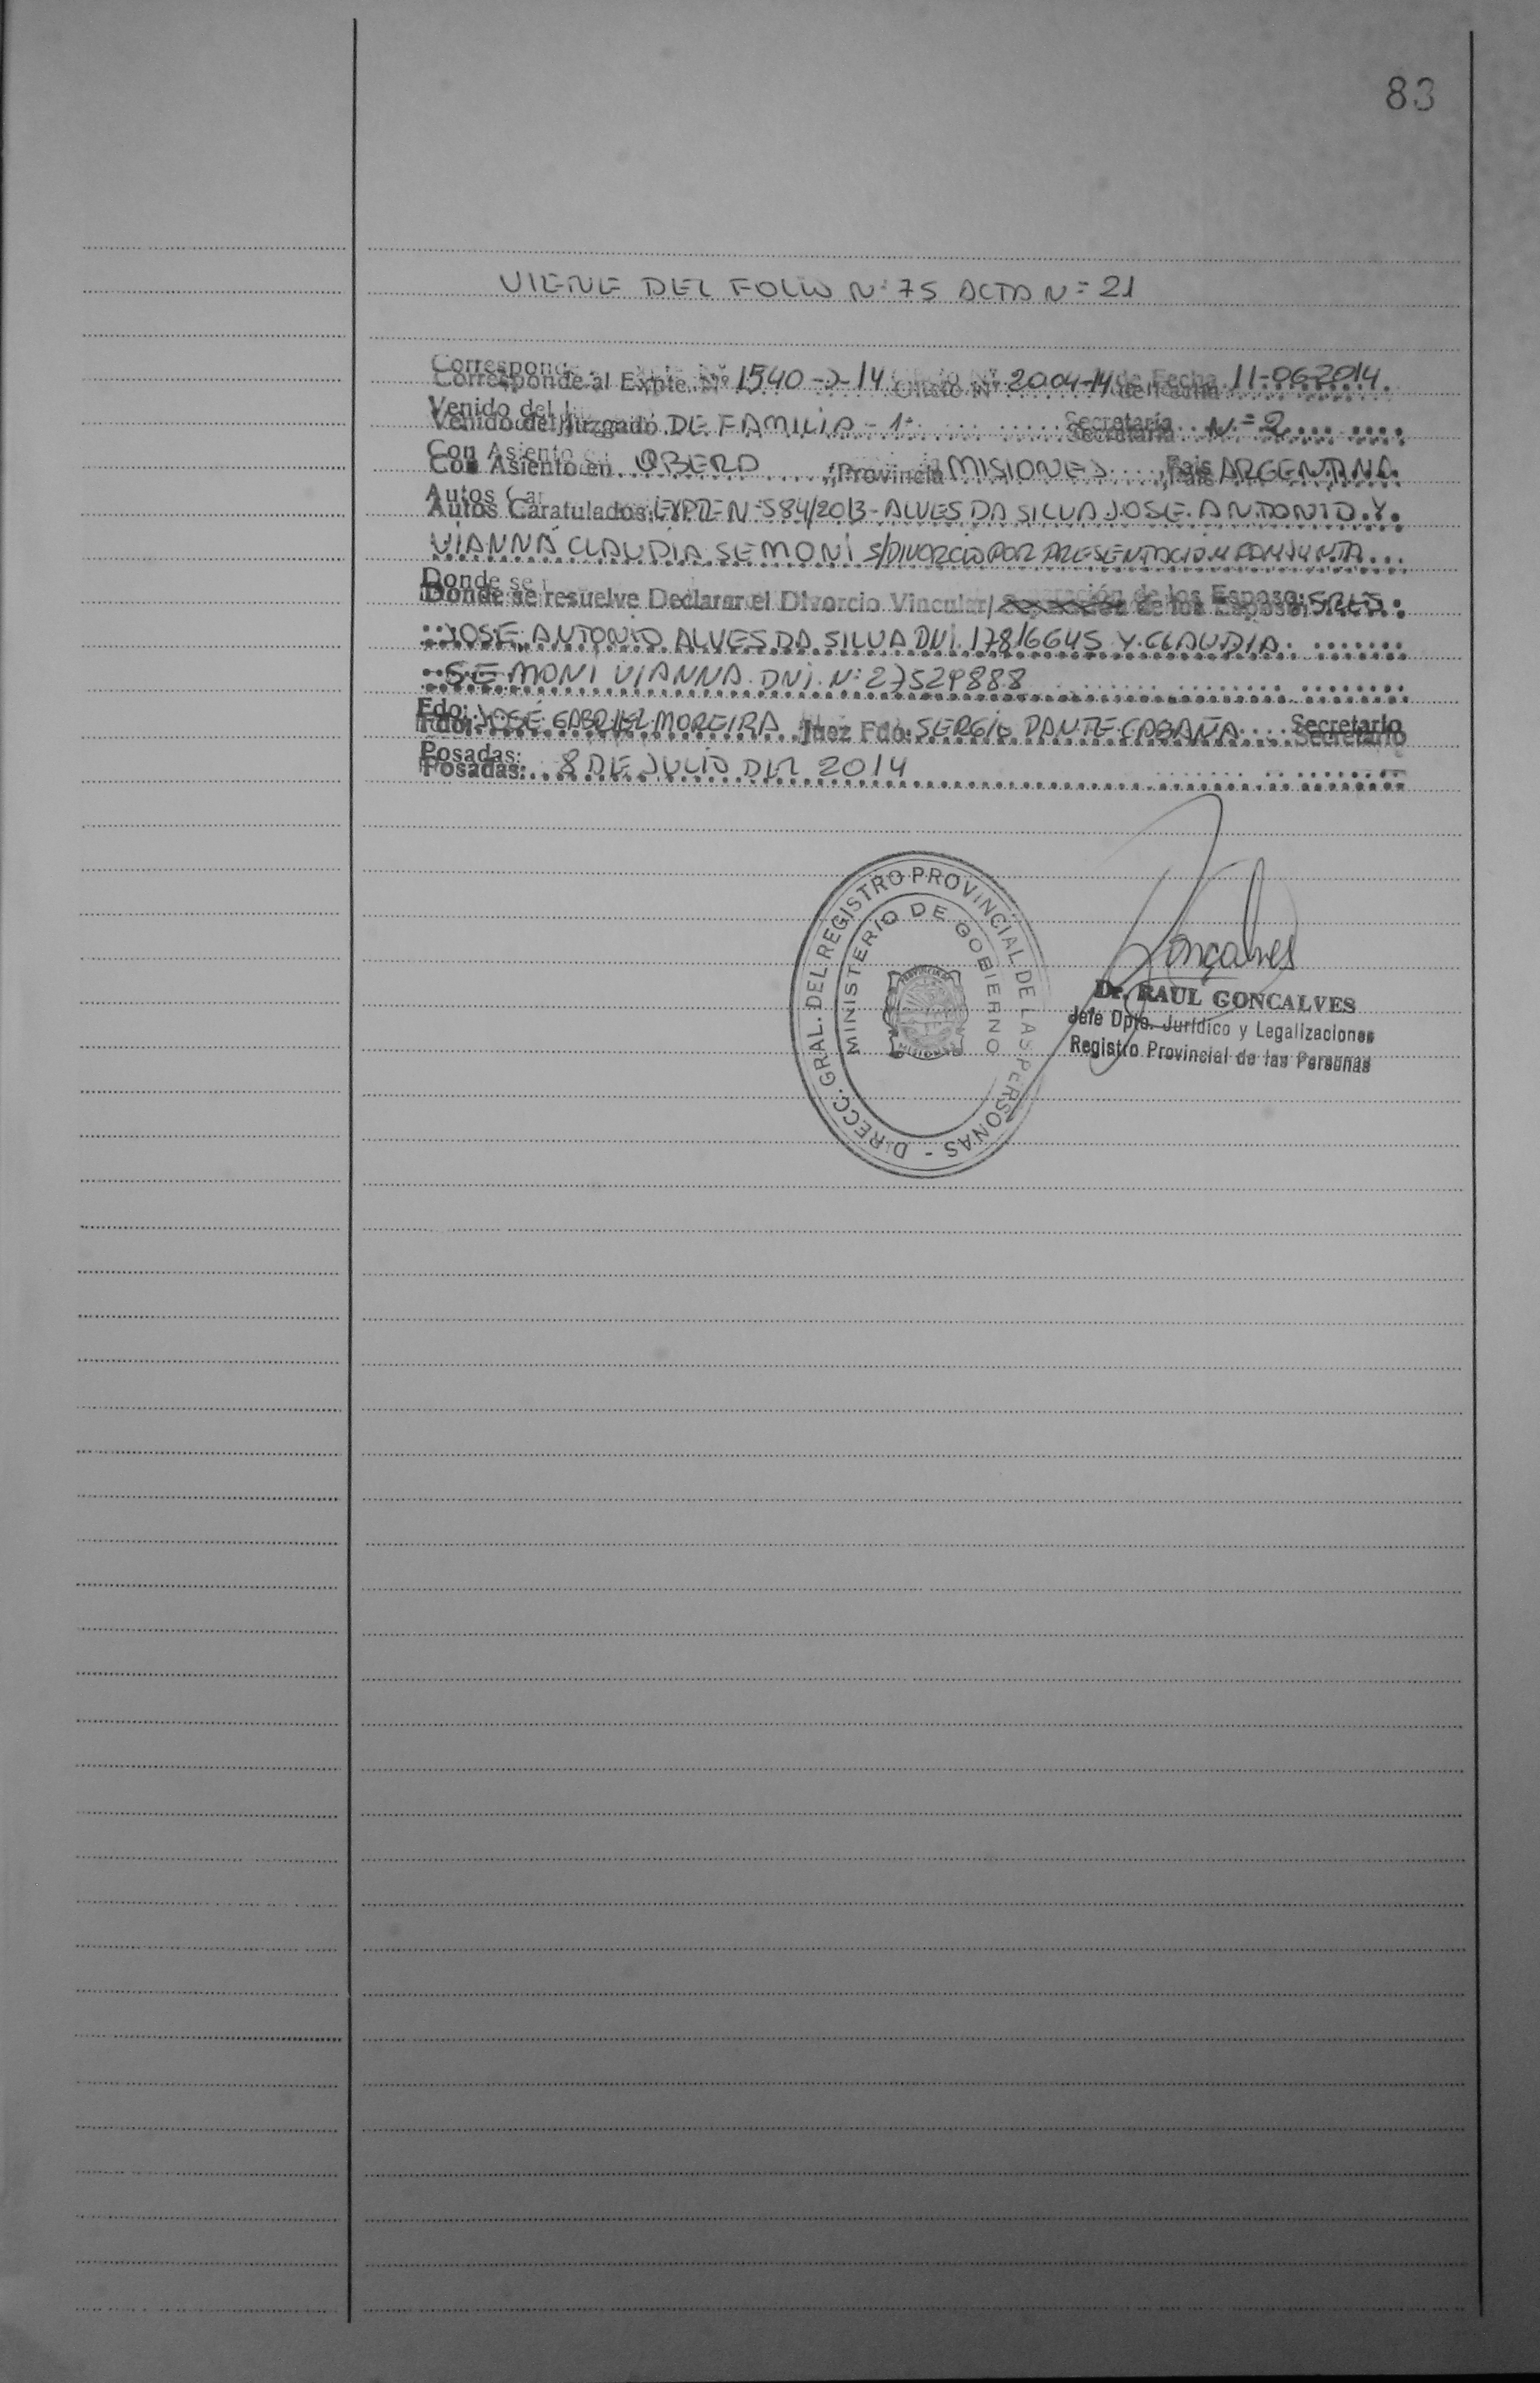 83
VIENE DEL FOLIO N: 75 ACTA N= 21
Corresponde al Expte. Nº 1540-J-14 Oficio Nº 2004-14 de Fecha 11-06-2014
Venido del Juzgado DE FAMILIA - 1ª Secretaría N=2
Con Asiento en OBERA, Provincia MISIONES, Pais ARGENTINA
Autos Caratulados: EXPTE N=584/2013 - ALVES DA SILVA JOSE ANTONIO Y
VIANNA CLAUDIA SEMONI S/DIVORCIO POR PRESENTACION CONJUNTA
Donde se resuelve Declarar el Divorcio Vincular/ de los Esposos: SRES:
JOSE ANTONIO ALVES DA SILVA DNI. 17816645 Y CLAUDIA
SEMONI VIANNA. DNI. N: 27529888
Fdo: JOSÉ GABRIEL MOREIRA Juez Fdo: SERGIO DANTE CABAÑA Secretario
Posadas: 8 DE JULIO DEL 2014
DIRECC. GRAL. DEL REGISTRO PROVINCIAL DE LAS PERSONAS -
MINISTERIO DE GOBIERNO
MISIONES
Gonçalves
Dr. RAUL GONCALVES
Jefe Dpto. Jurídico y Legalizaciones
Registro Provincial de las Personas